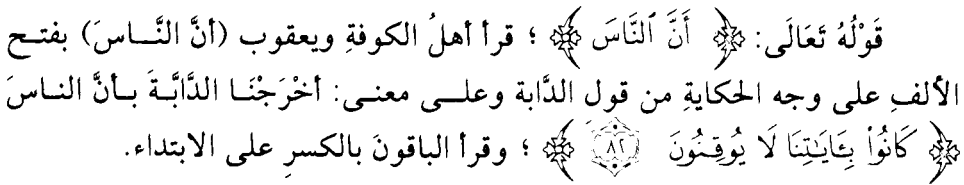 قَوْلُهُ تَعَالَى: ﴿ أَنَّ ٱلنَّاسَ ﴾ ؛ قرأ أهلُ الكوفةِ ويعقوب (أنَّ النَّـاسَ) بفتـح
الألفِ على وجه الحكايةِ من قول الدَّابة وعلـى معنـى: أخْرَجْنَـا الدَّابَّـةَ بـأنَّ النـاسَ
﴿ كَانُوا۟ بِـَٔايَـٰتِنَا لَا يُوقِنُونَ ٨٢ ﴾ ؛ وقرأ الباقونَ بالكسرِ على الابتداء.